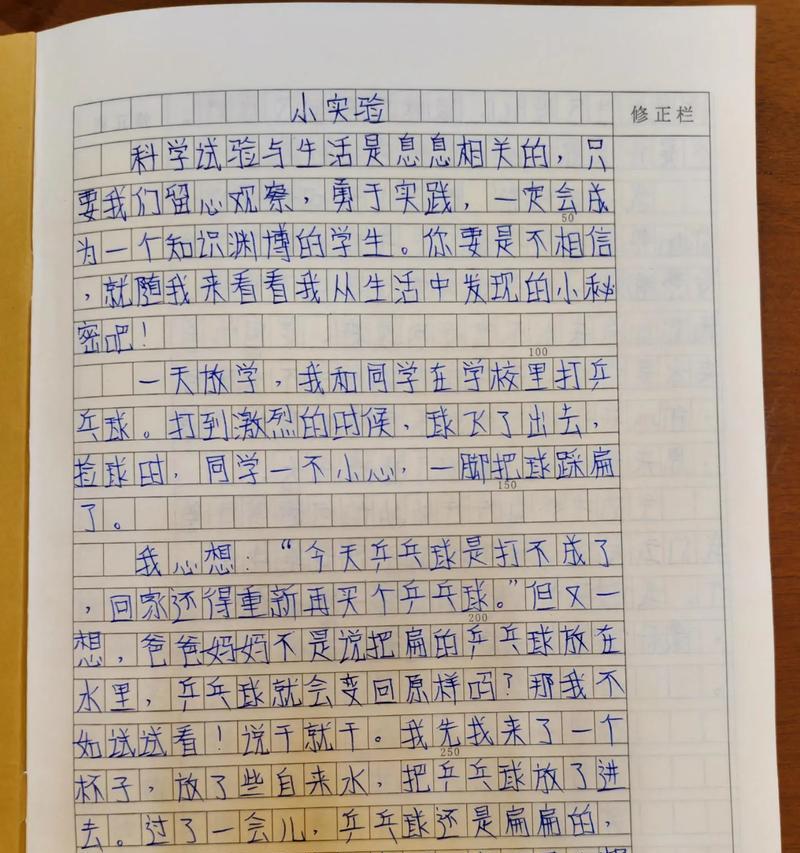 小实验
修正栏
科学试验与生活是息息相关的，只
要我们留心观察，勇于实践，一定会成
50
为一个知识渊博的学生。你要是不相信
，就随我来看看我从生活中发现的小秘
密吧！
100
一天放学，我和同学在学校里打乒
乓球。打到激烈的时候，球飞了出去，
捡球时，同学一不小心，一脚把球踩扁
150
了。
我心想：“今天乒乓球是打不成了
，回家还得重新再买个乒乓球。”但又一
200
想，爸爸妈妈不是说把扁的乒乓球放在
水里，乒乓球就会变回原样吗？那我不
如试试看！说干就干。我先找来了一个
250
杯子，放了些自来水，把乒乓球放了进
去。过了一会儿，乒乓球还是扁扁的，